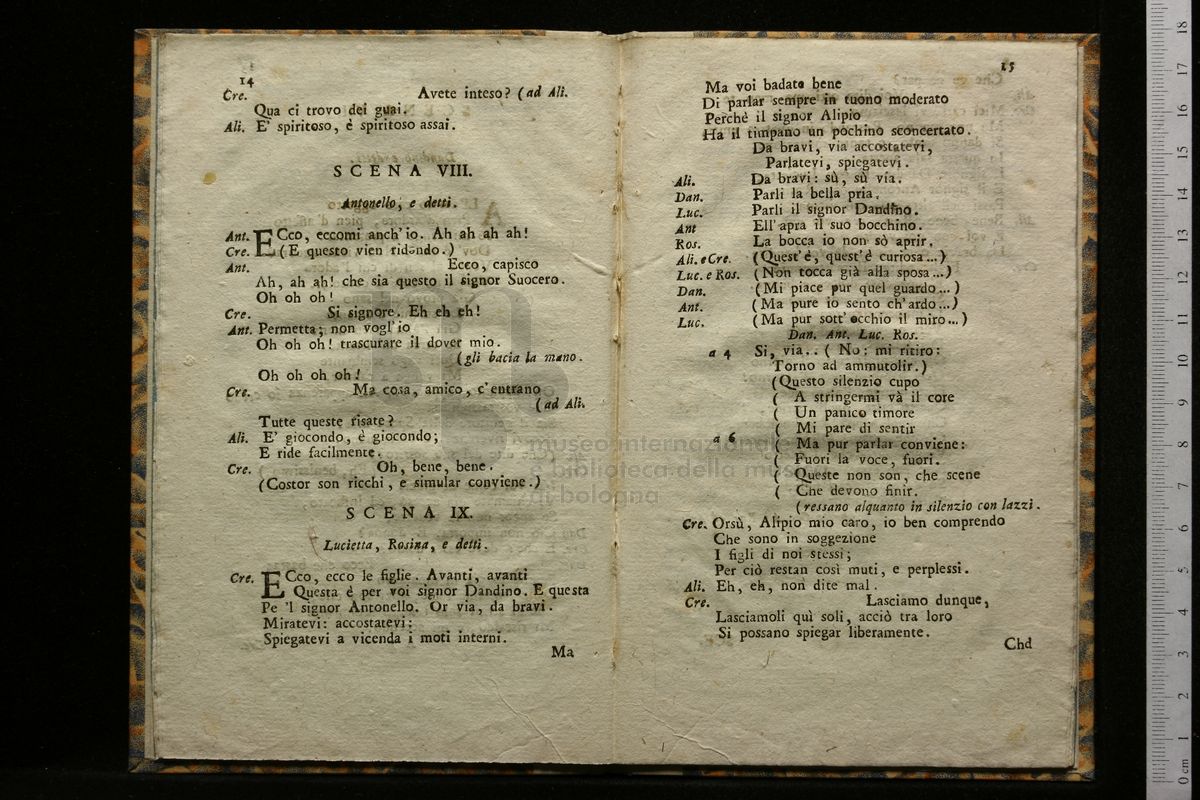 14
Cre. Avete inteso? (ad Ali.
Qua ci trovo dei guai.
Ali. E' spiritoso, è spiritoso assai.
SCENA VIII.
Antonello, e detti.
Ant. ECco, eccomi anch'io. Ah ah ah ah!
Cre. (E questo vien ridendo.)
Ant. Ecco, capisco
Ah, ah, ah! che sia questo il signor Suocero.
Oh oh oh!
Cre. Si signore. Eh eh eh!
Ant. Permetta; non vogl'io
Oh oh oh! trascurare il dover mio.
(gli bacia la mano.
Oh oh oh oh!
Cre. Ma cosa, amico, c'entrano
(ad Ali.
Tutte queste risate?
Ali. E' giocondo, è giocondo;
E ride facilmente.
Cre. Oh, bene, bene.
(Costor son ricchi, e simular conviene.)
SCENA IX.
Lucietta, Rosina, e detti.
Cre. ECco, ecco le figlie. Avanti, avanti
Questa è per voi signor Dandino. E questa
Pe 'l signor Antonello. Or via, da bravi.
Miratevi: accostatevi:
Spiegatevi a vicenda i moti interni.
Ma
15
Ma voi badate bene
Di parlar sempre in tuono moderato
Perchè il signor Alipio
Ha il timpano un pochino sconcertato.
Da bravi, via accostatevi,
Parlatevi, spiegatevi.
Ali. Da bravi: sù, sù via.
Dan. Parli la bella pria.
Luc. Parli il signor Dandino.
Ant Ell'apra il suo bocchino.
Ros. La bocca io non sò aprir.
Ali. e Cre. (Quest'è, quest'è curiosa...)
Luc. e Ros. (Non tocca già alla sposa...)
Dan. (Mi piace pur quel guardo...)
Ant. (Ma pure io sento ch'ardo...)
Luc. (Ma pur sott'occhio il miro...)
Dan. Ant. Luc. Ros.
a 4 Si, via.. ( No: mi ritiro:
Torno ad ammutolir.)
(Questo silenzio cupo
( A stringermi và il core
( Un panico timore
( Mi pare di sentir
a 6 ( Ma pur parlar conviene:
( Fuori la voce, fuori.
( Queste non son, che scene
( Che devono finir.
(ressano alquanto in silenzio con lazzi.
Cre. Orsù, Alipio mio caro, io ben comprendo
Che sono in soggezione
I figli di noi stessi;
Per ciò restan così muti, e perplessi.
Ali. Eh, eh, non dite mal.
Cre. Lasciamo dunque,
Lasciamoli quì soli, acciò tra loro
Si possano spiegar liberamente.
Chd
museo internazionale
e biblioteca della musica
di bologna
0 cm 1 2 3 4 5 6 7 8 9 10 11 12 13 14 15 16 17 18